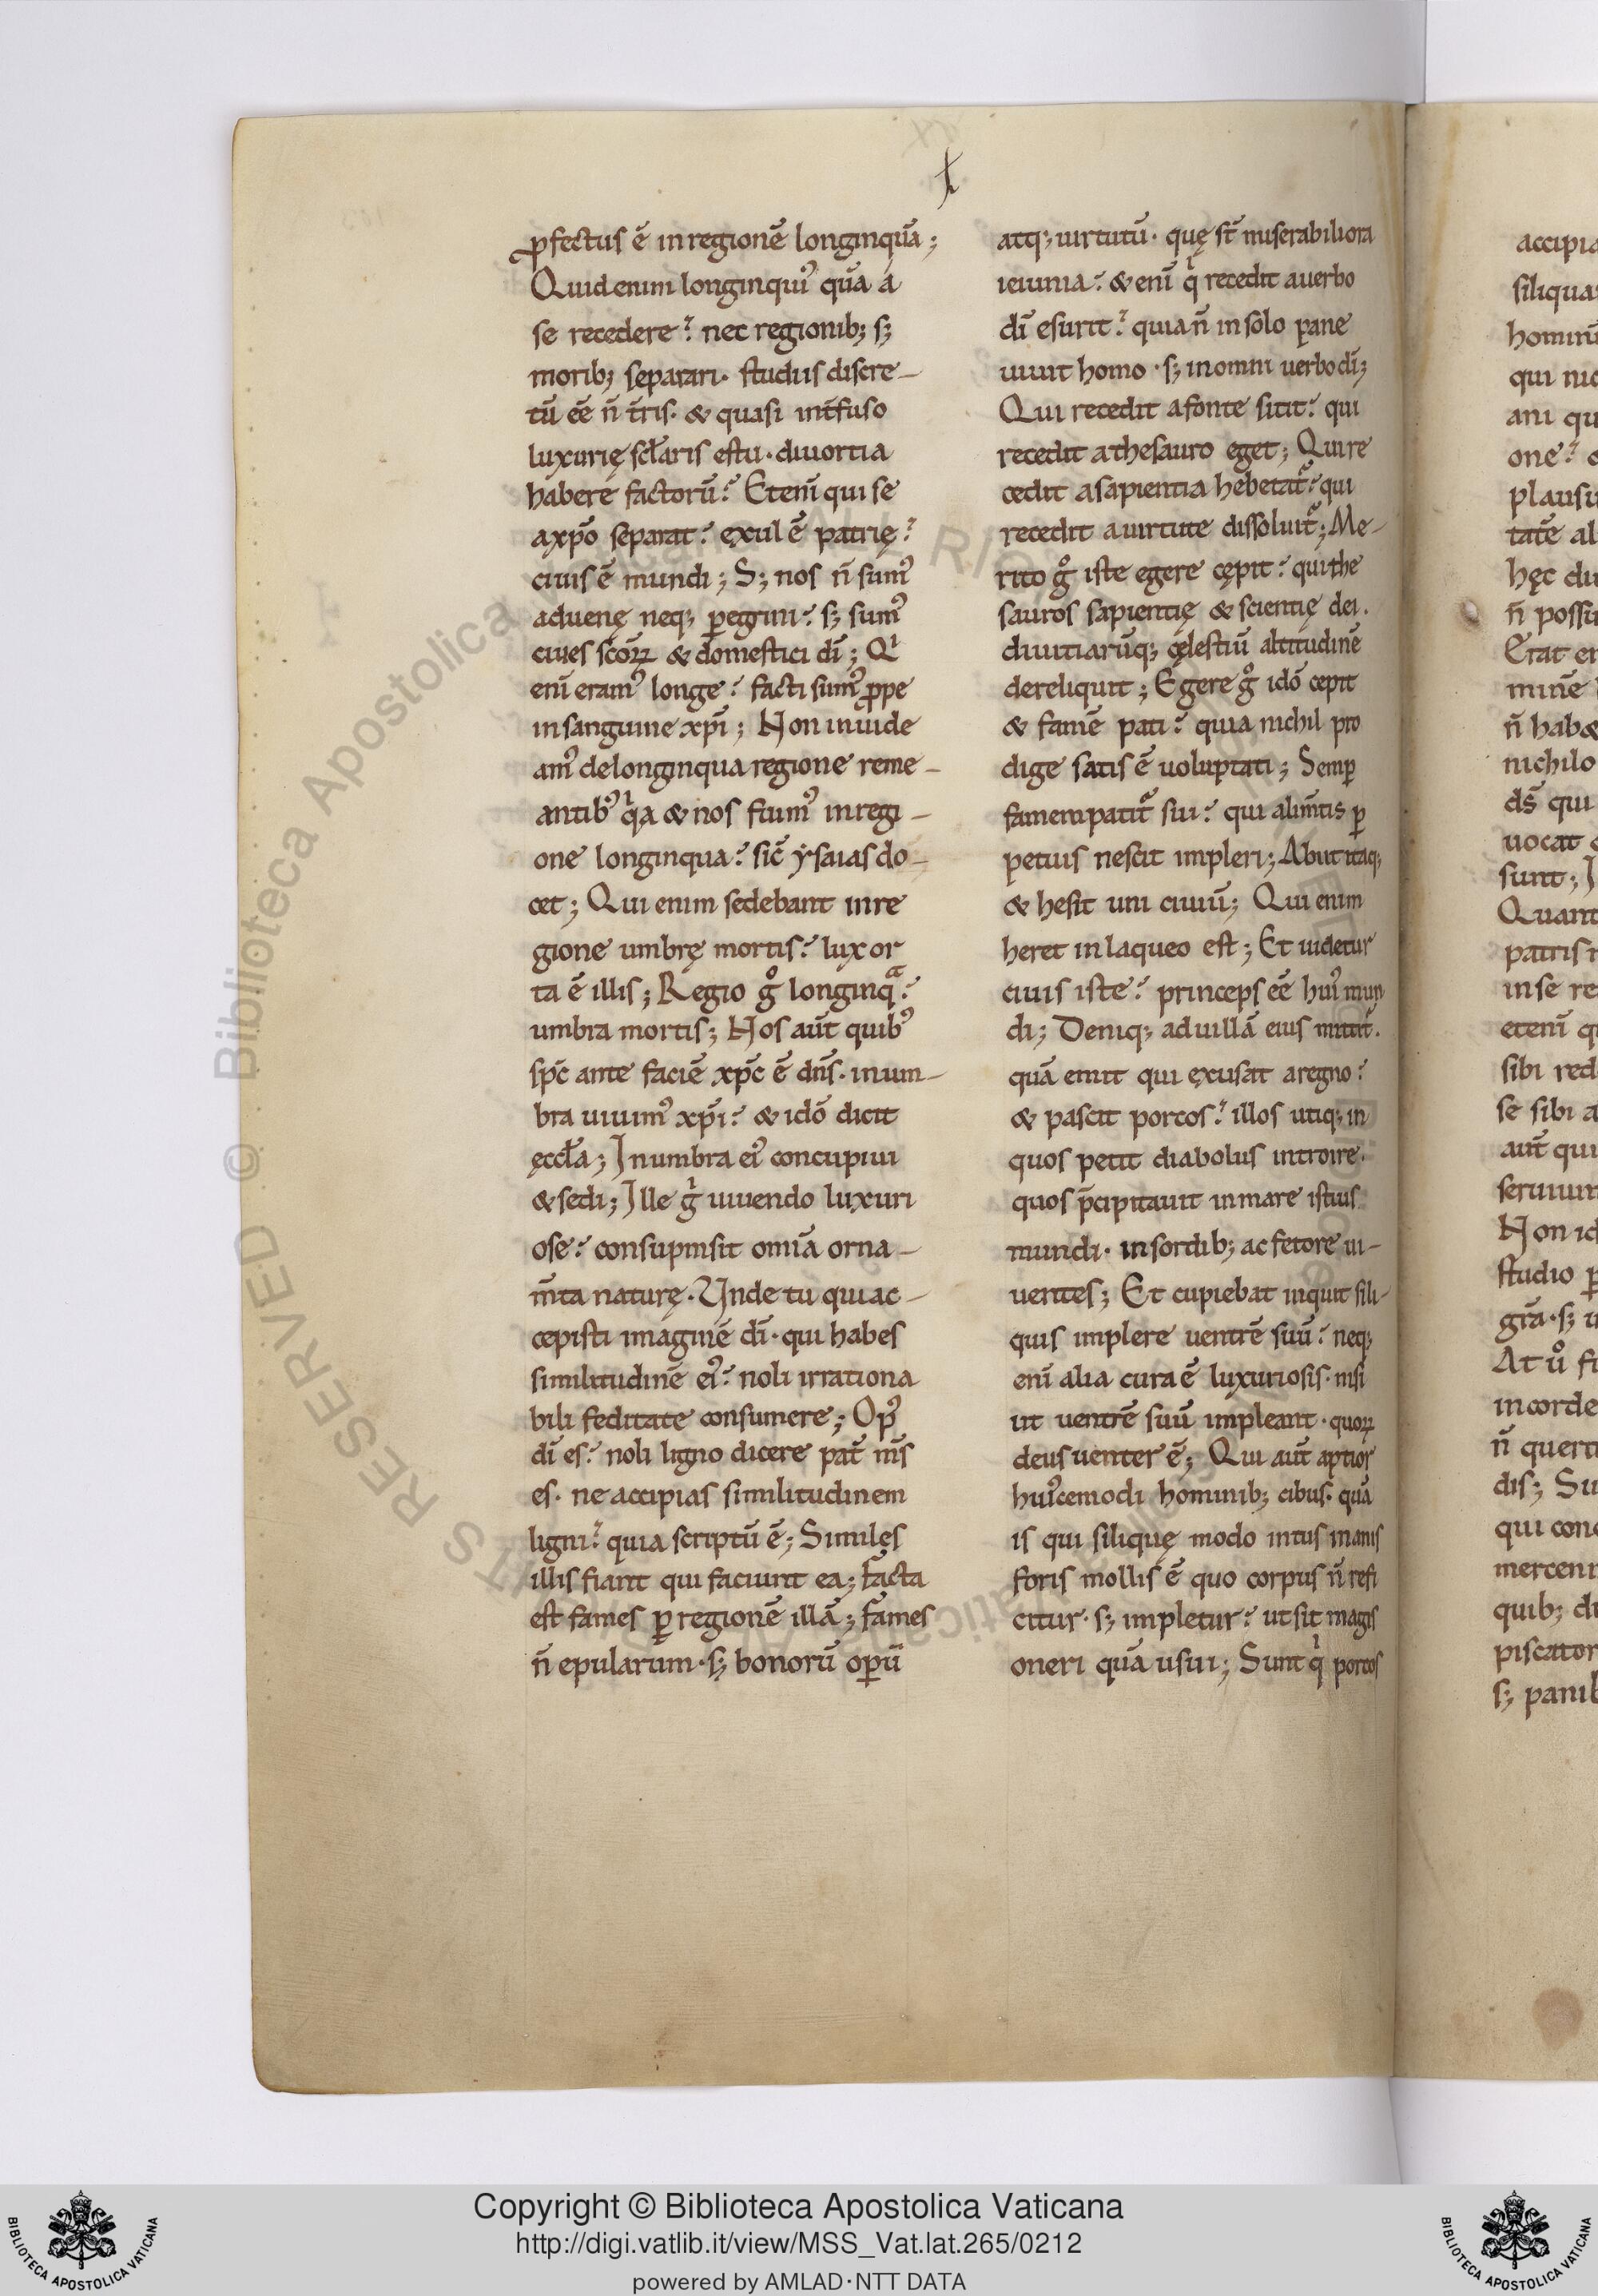 ꝓfectus ē in regionē longinquā;
Quid enim longinquiꝰ quā a
se recedere? nec regionib; s;
morib; separari. studiis discre-
tū eē n̄ t̄ris. & quasi int̄fuso
luxurię sclaris estu. diuortia
habere factorū? Etenī qui se
a xp̄o separat? exul ē patrię?
ciuis ē mundi; S; nos n̄ sumꝰ
aduenę neq; ꝑegrini? s; sumꝰ
ciues sc̄oꝝ & domestici dī; Qi
enī eramꝰ longe? facti sumꝰ ꝓpe
in sanguine xp̄i; Non inuide
amꝰ de longinqua regione reme-
antibꝰ qia & nos fuimꝰ in regi-
one longinqua? sic̄ ysaias do-
cet; Qui enim sedebant in re
gione umbrę mortis? lux or
ta ē illis; Regio gͦ longinqa?
umbra mortis; Nos aūt quibꝰ
sp̄c ante faciē xp̄c ē dn̄s. in um-
bra uiuimꝰ xp̄i? & idō dicit
ęccła; In umbra eiꝰ concupiui
& sedi; Ille gi uiuendo luxuri
ose? consupmsit omīa orna-
m̄ta naturę. Unde tu qui ac-
cepisti imaginē dī. qui habes
similitudinē eiꝰ? noli irrationa
bili feditate consumere; Opꝰ
dī es? noli ligno dicere pat̄ m̄s
es. ne accipias similitudinem
ligni? quia scriptū ē; Similes
illis fiant qui faciunt ea; facta
est fames ꝑ regionē illā; fames
n̄ epularum. s; bonorū oꝑū
atq; uirtutū. quę st̄ miserabiliora
ieiunia? & enī qi recedit a uerbo
dī esurit? quia n̄ in solo pane
uiuit homo. s; in omni uerbo dī;
Qui recedit a fonte sitit? qui
recedit a thesauro eget; Qui re
cedit a sapientia hebetat̄? qui
recedit a uirtute dissoluit̄; Me-
rito gͦ iste egere cępit? qui the
sauros sapientię & scientię dei.
diuitiarūq; cęlestiū altitudinē
dereliquit; Egere gͦ idō cepit
& famē pati? quia nichil pro
dige satis ē uoluptati; Semꝑ
famem patit̄ sui? qui alim̄tis ꝑ
petuis nescit impleri; Abiit itaq;
& hesit uni ciuiū; Qui enim
heret in laqueo est; Et uidetur
ciuis iste? princeps eē huiꝰ mun
di; Deniq; ad uillā eius mittit̄.
quā emit qui excusat a regno?
& pascit porcos? illos utiq; in
quos petit diabolus introire.
quos p̄cipitauit in mare istius
mundi. in sordib; ac fetore ui-
uentes; Et cupiebat inquit sili-
quis implere uentrē suū? neq;
enī alia cura ē luxuriosis. nisi
ut uentrē suū impleant. quoꝝ
deus uenter ē; Qui aūt aptior
huiꝰcemodi hominib; cibus. quā
is qui silique modo intus inanis
foris mollis ē quo corpus n̄ refi
citur. s; impletur? ut sit magis
oneri quā usui; Sunt qi porcos
Copyright © Biblioteca Apostolica Vaticana
http://digi.vatlib.it/view/MSS_Vat.lat.265/0212
powered by AMLAD·NTT DATA
BIBLIOTECA APOSTOLICA VATICANA
BIBLIOTECA APOSTOLICA VATICANA